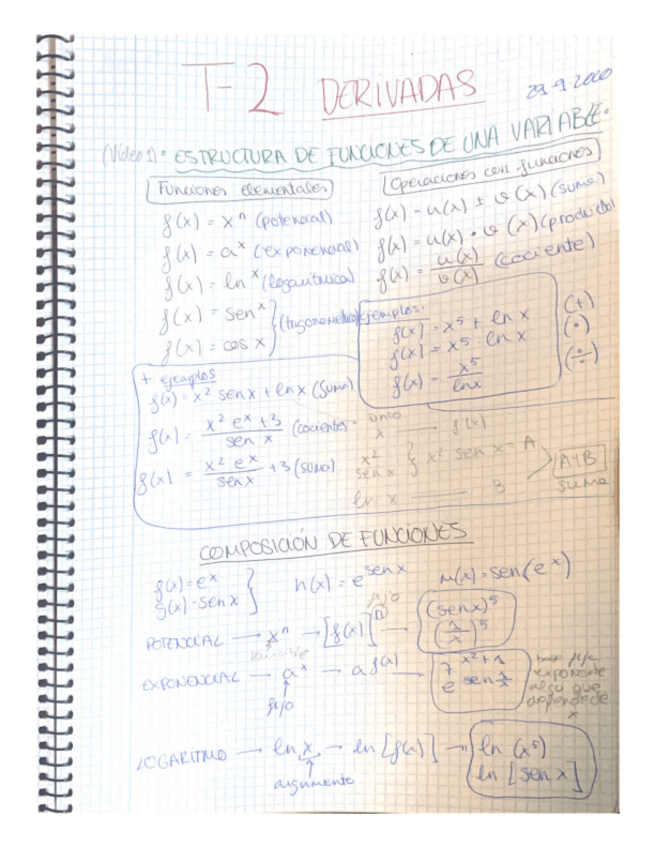 T-2 DERIVADAS
(Vídeo 1) • ESTRUCTURA DE FUNCIONES DE UNA VARIABLE.
Funciones elementales
f(x) = x^n (potencial)
f(x) = a^x (exponencial)
f(x) = ln^x (logarítmica)
f(x) = sen^x
f(x) = cos x } (trigonométrica)
Operaciones con funciones
f(x) = u(x) ± v(x) (suma)
f(x) = u(x) • v(x) (producto)
f(x) = u(x)/v(x) (cociente)
ejemplos.
f(x) = x^5 + ln x (+)
f(x) = x^5 · ln x (•)
f(x) = x^5/ln x (÷)
+ ejemplos
f(x) = x^2 sen x + ln x (suma)
f(x) = (x^2 e^x + 3)/sen x (cociente)
f(x) = (x^2 e^x)/sen x + 3 (suma)
x — f(x)
x^2
sen x } x^2 sen x = A
ln x — B
A y B
suma
COMPOSICIÓN DE FUNCIONES
f(x) = e^x
g(x) = sen x }
h(x) = e^sen x
m(x) = sen(e^x)
POTENCIAL → x^n → [f(x)]^n → (sen x)^5
variable
fijo
EXPONENCIAL → a^x → a^f(x) → 7^(x^2+1)
fijo
exponente
algo que
depende de
x
LOGARITMO → ln x → ln [f(x)] → ln (x^5)
ln [sen x]
argumento